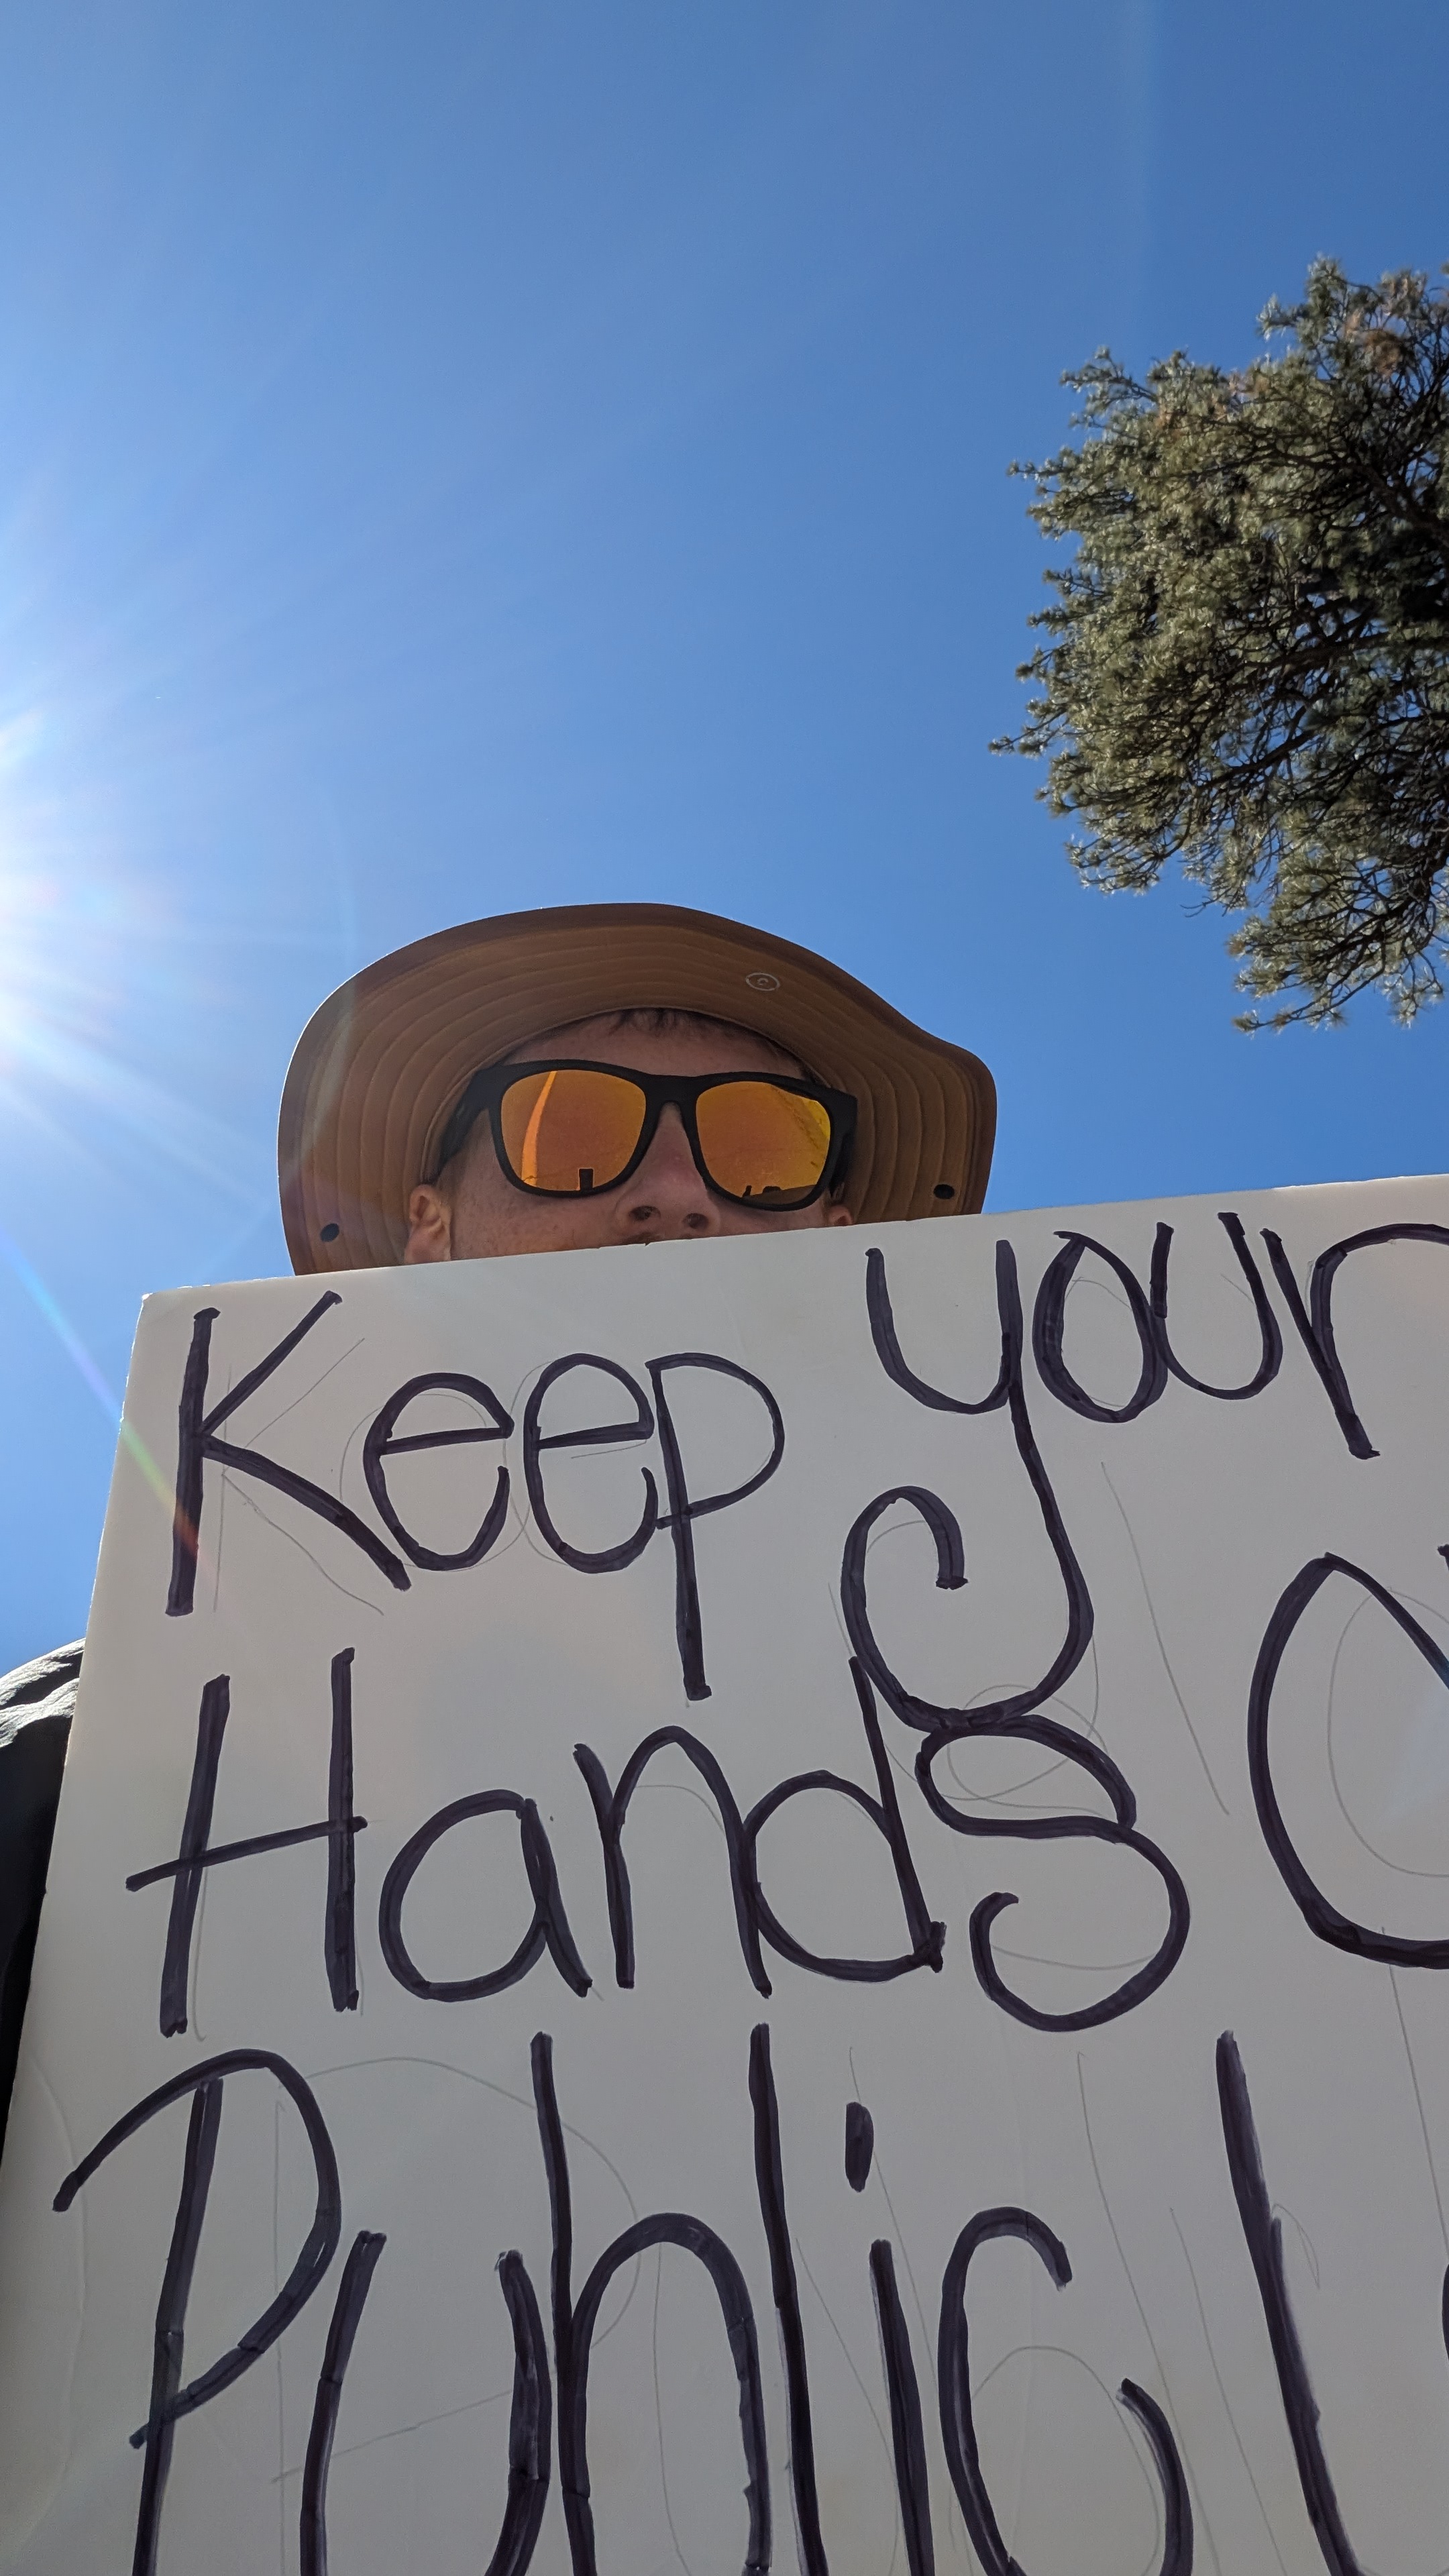 Keep your
Hands
Public